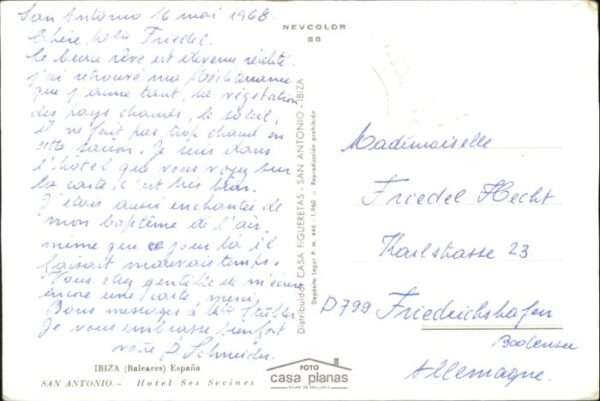 San Antonio 16 mai 1968
Chère Mlle Friedel.
Le beau rêve est devenu réalité.
j'ai retrouvé ma Méditerranée
que j'aime tant, la végétation
des pays chauds, le soleil,
il ne fait pas trop chaud en
cette saison. Je suis dans
l'hôtel que vous voyez sur
la carte, c'est très bien.
J'étais aussi enchantée de
mon baptême de l'air,
même que ce jour là il
faisait mauvais temps.
Vous êtes gentille de m'écrire
encore une carte, merci.
Bons messages à
Je vous embrasse bien fort
votre P. Schneider
IBIZA (Baleares) España
SAN ANTONIO.- Hotel Ses Sevines
NEVCOLOR
88
Distribuidor CASA FIGUERETAS - SAN ANTONIO - IBIZA
Depósito Legal P. M. - 1.968 - Reproducción prohibida
FOTO
casa planas
Mademoiselle
Friedel Hecht
Karlstrasse 23
D799 Friedrichshafen
Bodensee
Allemagne.